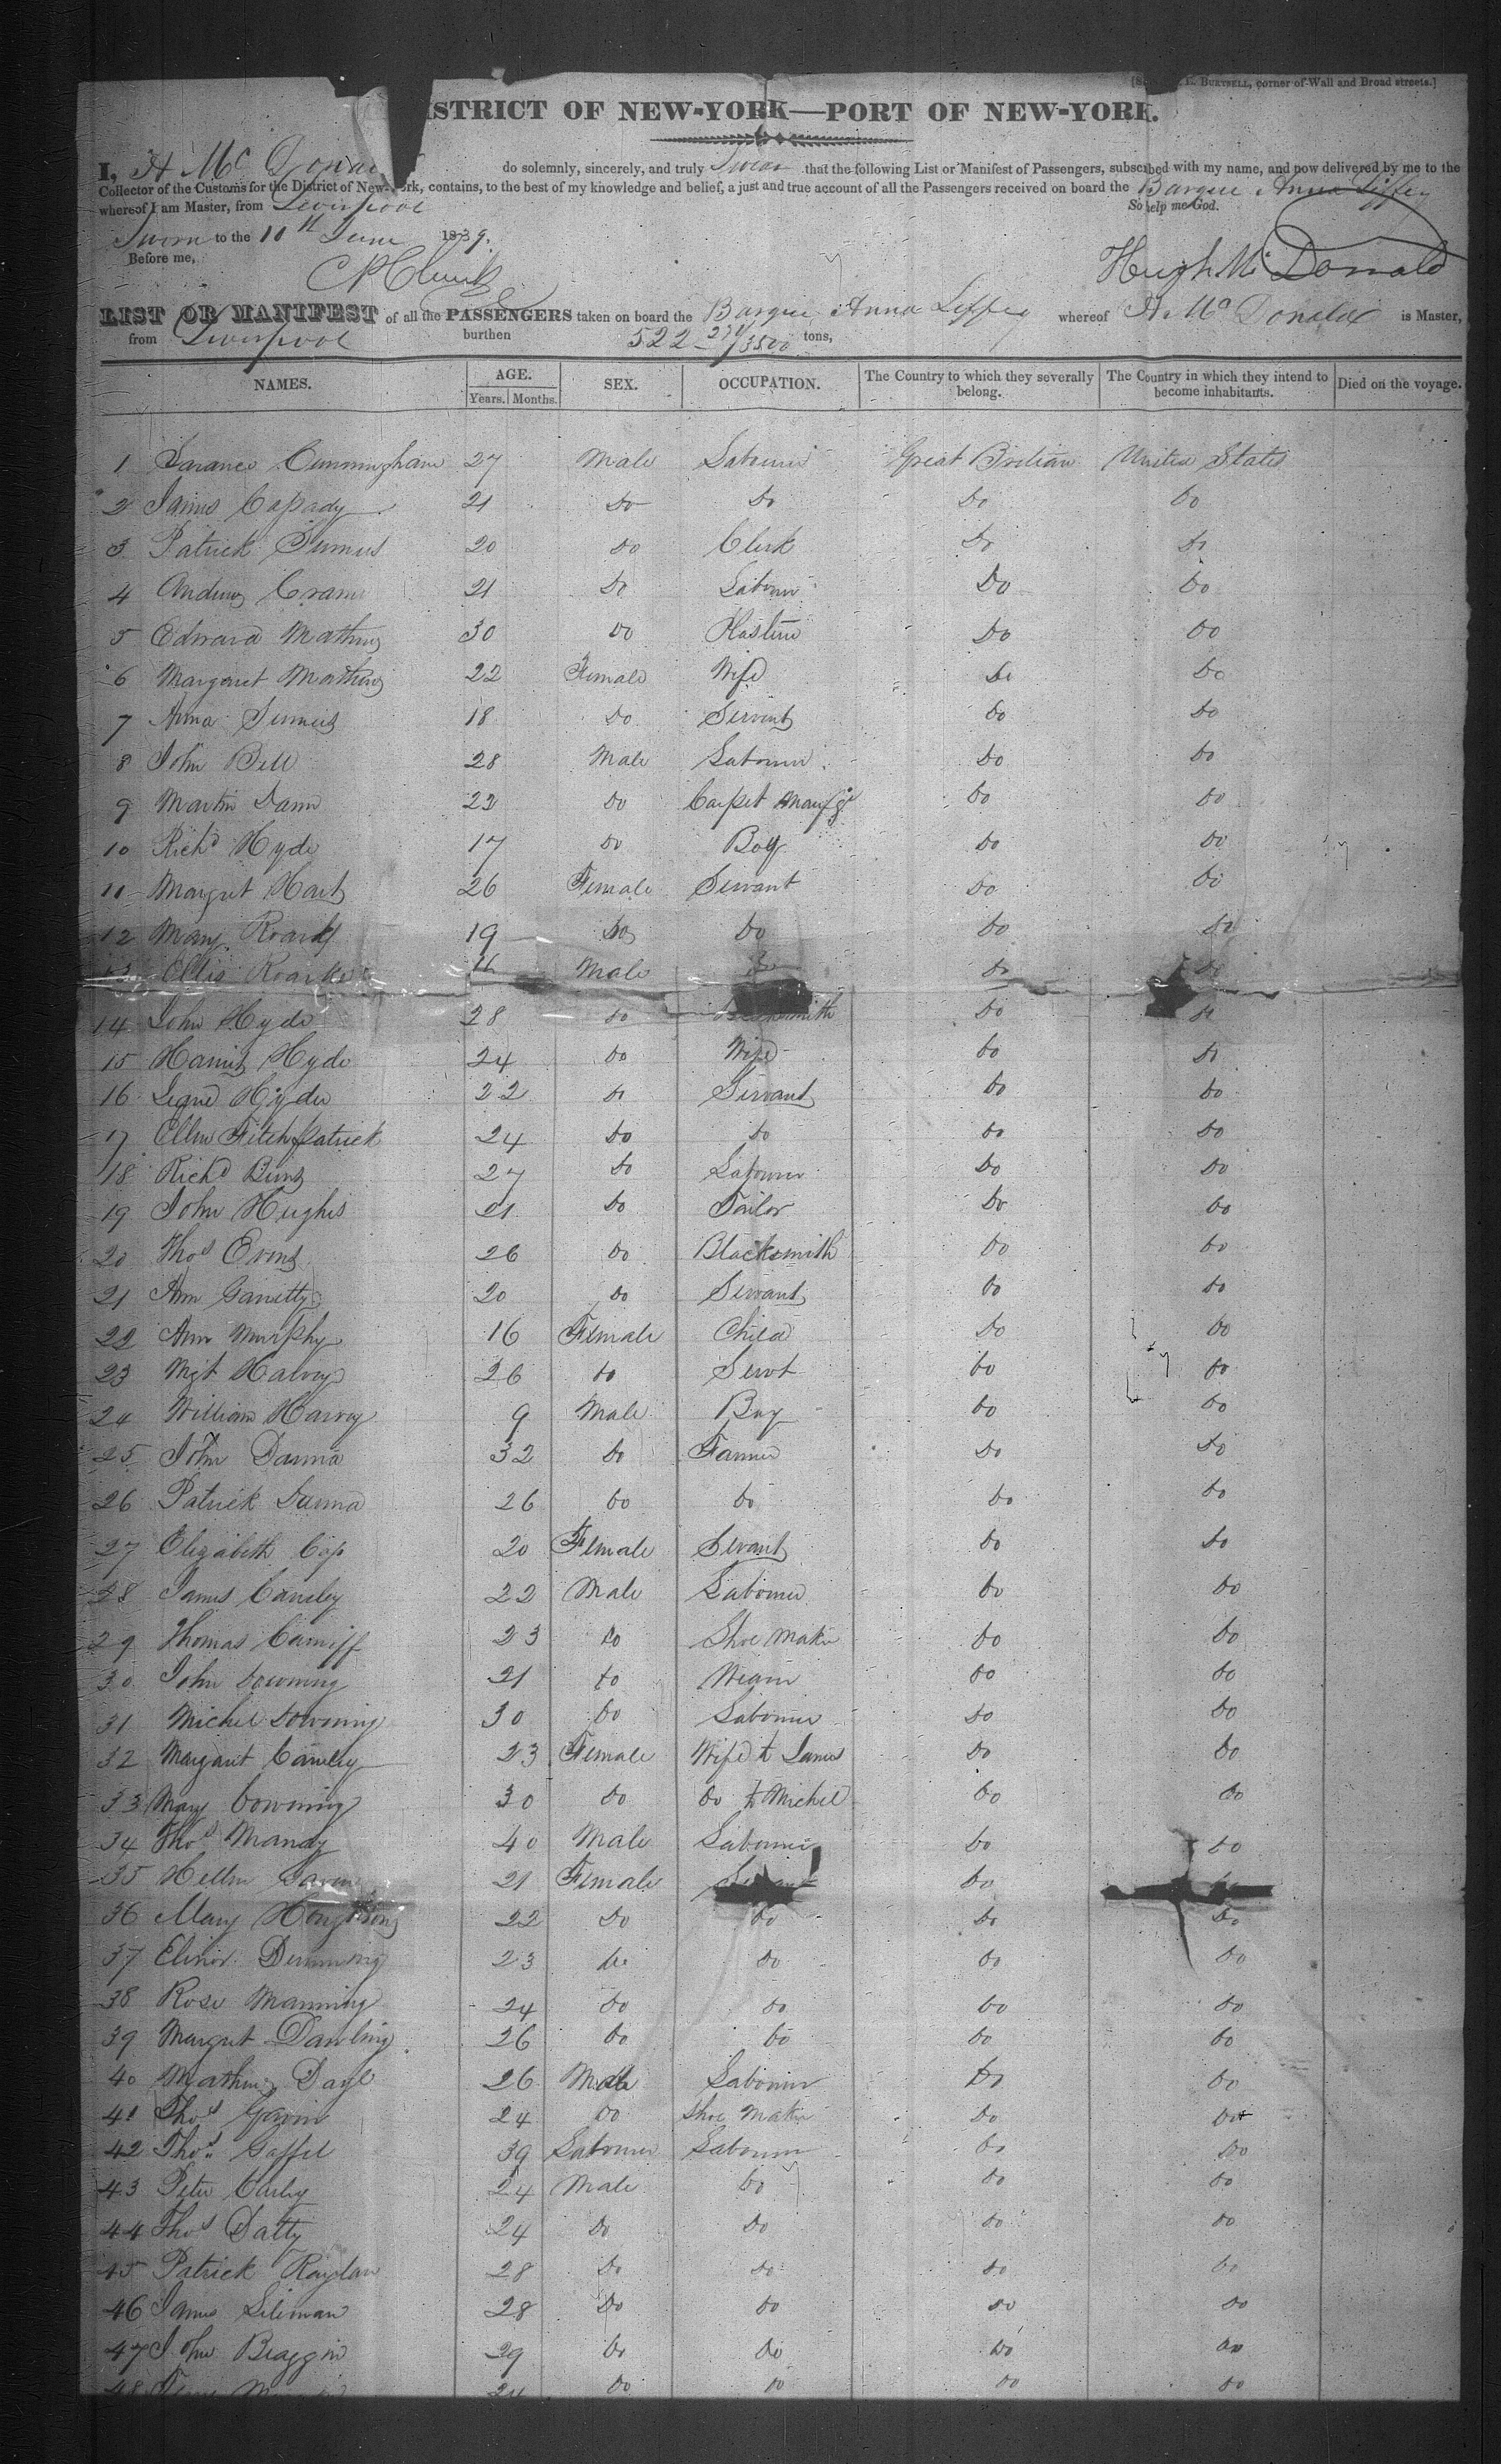 BURTSELL, corner of Wall and Broad streets.]
ISTRICT OF NEW-YORK—PORT OF NEW-YORK.
I, H Mc Dona do solemnly, sincerely, and truly Swear that the following List or Manifest of Passengers, subscribed with my name, and now delivered by me to the
Collector of the Customs for the District of New-York, contains, to the best of my knowledge and belief, a just and true account of all the Passengers received on board the Barque Anna Liffey
whereof I am Master, from Liverpool So help me God.
Sworn to the 10th June 1839.
Before me,
Hugh Mc Donald
LIST OR MANIFEST of all the PASSENGERS taken on board the Barque Anna Liffey whereof H Mc Donald is Master,
from Liverpool burthen 522 tons,
NAMES. AGE. Years. Months. SEX. OCCUPATION. The Country to which they severally belong. The Country in which they intend to become inhabitants. Died on the voyage.
1 Cunningham 27 Male Labourer Great Britian United States
2 James Capady 21 Do Do Do Do
3 Patrick 20 Do Clerk Do Do
4 Andrew 21 Do Labourer Do Do
5 Edward Mathews 30 Do Do Do
6 Margaret Mathews 22 Female Wife Do Do
7 Anna 18 Do Servant Do Do
8 John Bell 28 Male Labourer Do Do
9 Martin Dann 22 Do Carpet Do Do
10 Richd Hyde 17 Do Boy Do Do
11 Margret Hart 26 Female Servant Do Do
12 Mary Roark 19 Do Do Do Do
13 Ellis Roarke Male Do Do
14 John Hyde 28 Do Do Do
15 Hyde 24 Do Wife Do Do
16 Hyde 22 Do Servant Do Do
17 Ellen Fitchpatrick 24 Do Do Do Do
18 Richd 27 Do Labourer Do Do
19 John Hughes 21 Do Tailor Do Do
20 Thos Evens 26 Do Blacksmith Do Do
21 Ann Garretty 20 Do Servant Do Do
22 Ann Murphy 16 Female Child Do Do
23 Mgt Halvey 26 Do Servt Do Do
24 William Harvey 9 Male Boy Do Do
25 John Danna 32 Do Farmer Do Do
26 Patrick Danna 26 Do Do Do Do
27 Elizabeth Cop 20 Female Servant Do Do
28 James Cansley 22 Male Labourer Do Do
29 Thomas Canniff 23 Do Shoe Maker Do Do
30 John Downing 21 Do Do Do
31 Michel Downing 30 Do Labourer Do Do
32 Margaret Cansley 23 Female Wife to James Do Do
33 Mary Downing 30 Do Do to Michel Do Do
34 Thos Mandy 40 Male Labourer Do Do
35 Hellen 21 Female Do Do
36 Mary 22 Do Do Do Do
37 Elinor 23 Do Do Do Do
38 Rose Manning 24 Do Do Do Do
39 Margret Dawling 26 Do Do Do Do
40 Mathew Dayl 26 Male Labourer Do Do
41 Thos Gavin 24 Do Shoe Maker Do Do
42 Thos Gaffel 39 Labourer Labourer Do Do
43 Peter Carley 24 Male Do Do Do
44 Thos Datty 24 Do Do Do Do
45 Patrick 28 Do Do Do Do
46 James 28 Do Do Do Do
47 John Braggin 29 Do Do Do Do
48 24 Do Do Do Do